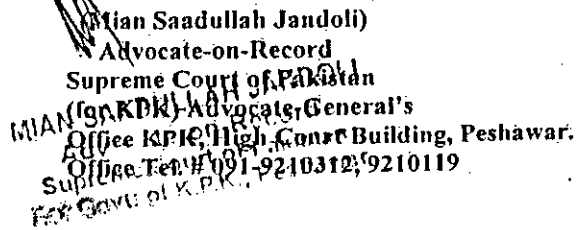 (Mian Saadullah Jandoli)
Advocate-on-Record
Supreme Court of Pakistan
(for KPK) Advocate General's
Office KPK, High Court Building, Peshawar.
Office Tel. # 091-9210312, 9210119
MIAN
Supreme
For Govt: of K.P.K.,